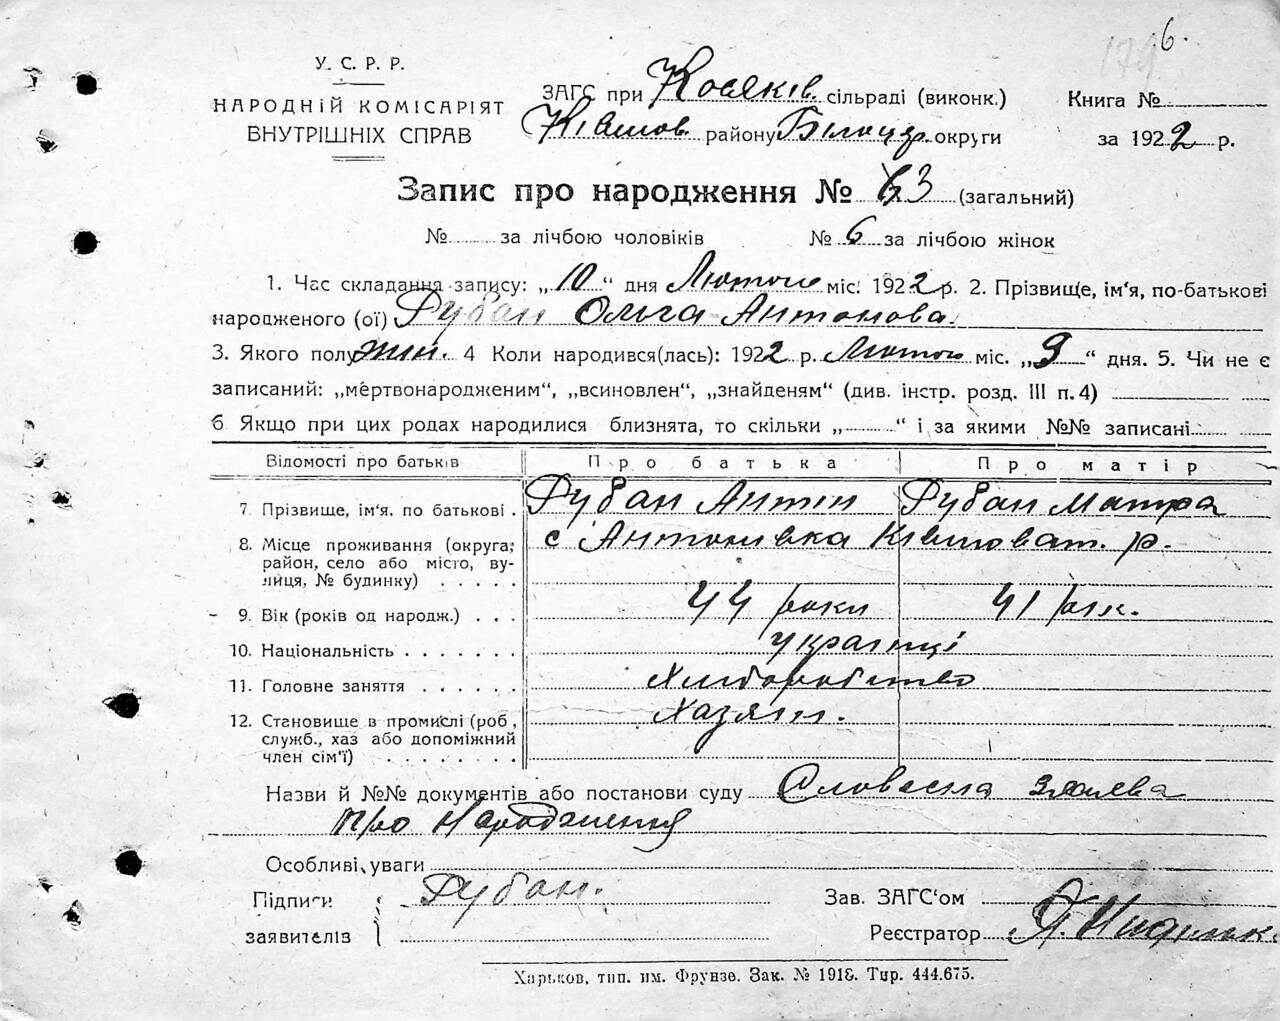 6.
У. С. Р. Р.
НАРОДНІЙ КОМІСАРІЯТ
ВНУТРІШНІХ СПРАВ
ЗАГС при Косяків. сільраді (виконк.)
Ківшов. району Білоцер. округи
Книга №
за 1922 р.
Запис про народження № 63 (загальний)
№ за лічбою чоловіків № 6 за лічбою жінок
1. Час складання запису: „10“ дня Лютого міс. 1922 р. 2. Прізвище, ім'я, по-батькові
народженого (ої) Рубан Ольга Антонова.
3. Якого полу жін. 4 Коли народився(лась): 1922 р. Лютого міс. „9“ дня. 5. Чи не є
записаний: „мертвонародженим“, „всиновлен“, „знайденям“ (див. інстр. розд. III п. 4)
6 Якщо при цих родах народилися близнята, то скільки „ “ і за якими №№ записані
Відомості про батьків Про батька Про матір
7. Прізвище, ім'я. по батькові . Рубан Антін Рубан Мотря
8. Місце проживання (округа, с Антонівка Ківшоват. р.
район, село або місто, ву-
лиця, № будинку) . . . . .
9. Вік (років од народж.) . . . 44 роки 41 рік.
10. Національність . . . . . . . українці
11. Головне заняття . . . . . . Хліборобство
12. Становище в промислі (роб, Хазяїн.
служб., хаз або допоміжний
член сім'ї) . . . . . . . .
Назви й №№ документів або постанови суду Словесна заява
про Народження
Особливі уваги
Підписи Рубан. Зав. ЗАГС'ом
заявителів Реєстратор
Харьков, тип. им. Фрунзе. Зак. № 1918. Тир. 444.675.